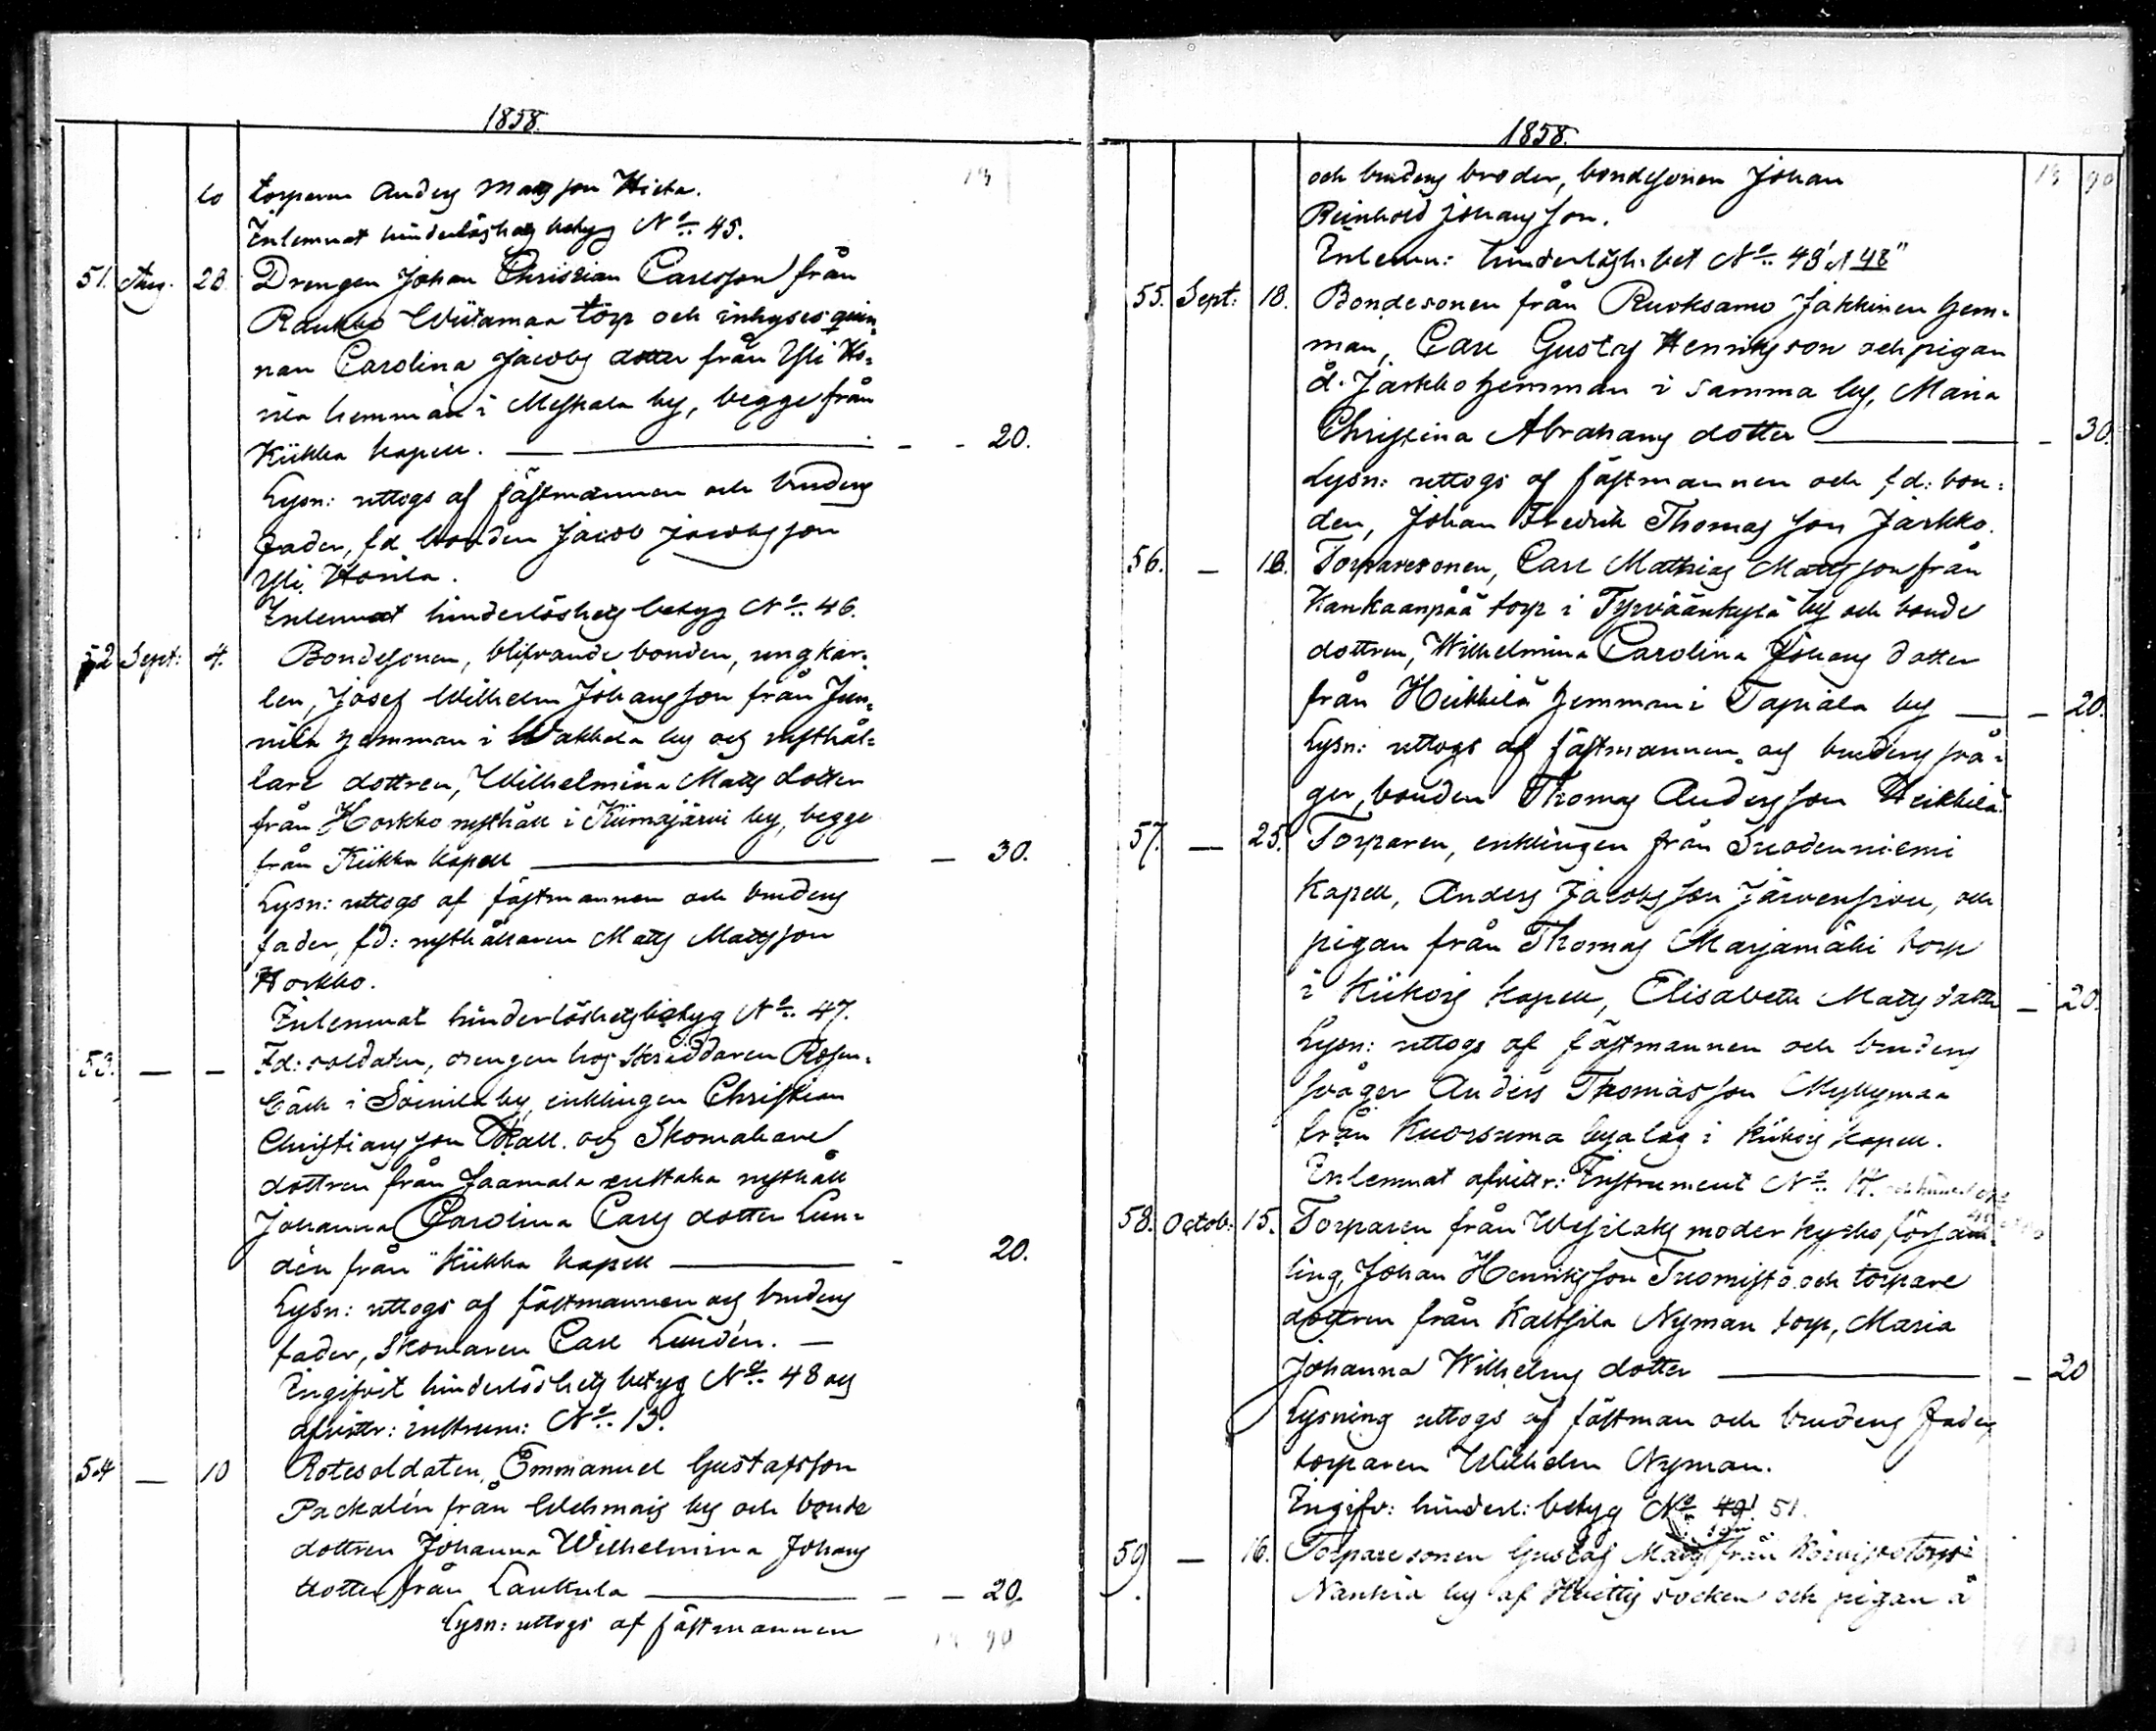 1858.
torparen Anders Mats son Hieta.
Inlemnat hinderlöshets betyg No 45.
51. Aug. 28. Drengen Johan Christian Carlsson från
Raukko Wiitamaa torp och inhyses quin-
nan Carolina Jacobs dotter från Yli Ho-
nila hemman i Meskala by, begge från
Kiikka kapell. — - - 20.
Lysn: uttogs af fästmannen och brudens
fader, fd bonden Jacob Jacobsson
Yli Honila.
Inlemnat hinderlöshets betyg No 46.
52 Sept: 4. Bondesonen, blifvande bonden, ungkar-
len, Josef Wilhelm Johansson från Jun-
nila hemman i Wakkala by och rusthål-
lare dottren, Wilhelmina Mats dotter
från Horkko rusthåll i Kiimajärvi by, begge
från Kiikka kapell — - 30.
Lysn: uttogs af fästmannen och brudens
fader, fd: rusthållaren Mats Matsson
Horkko.
Inlemnat hinderlöshets betyg No 47.
53. — — Fd: soldaten, drengen hos Skräddaren Rosen-
bäck i Soinila by, enklingen Christian
Christiansson Skall och Skomakare
dottren från Jaamala rustaka rusthåll
Johanna Carolina Carls dotter Lun-
dén från Kiikka kapell — - 20.
Lysn: uttogs af fästmannen och brudens
fader, Skomaren Carl Lundén. —
Ingifvit hinderlöshets betyg No 48 och
afvittr: instrum: No 13.
54 — 10 Rotesoldaten, Emmanuel Gustafsson
Packalén från Wehmais by och bonde
dottren Johanna Wilhelmina Johans
dotter från Laukula — - - 20.
Lysn: uttogs af fästmannen
1858.
och brudens broder, bondesonen Johan
Reinhold Johansson.
Inlemn: hinderlösh. bet No 48' & 48"
55. Sept: 18. Bondesonen från Ruoksamo Jakkinen hem-
man, Carl Gustaf Henriksson och pigan
å Jaskko hemman i samma by, Maria
Christina Abrahams dotter — - 30.
Lysn: uttogs af fästmannen och fd: bon-
den, Johan Fredrik Thomas son Jaskko.
56. — 18. Torparesonen, Carl Mathias Matsson från
Kankaanpää torp i Tyrväänkylä by och bonde
dottren, Wilhelmina Carolina Johans dotter
från Heikkilä hemman i Tapiala by — - 20.
Lysn: uttogs af fästmannen och brudens svå-
ger, bonden Thomas Andersson Heikkilä.
57. — 25. Torparen, enklingen från Suodenniemi
kapell, Anders Jacobsson Järvensivu, och
pigan från Thomas Marjamäki torp
i Kiikois kapell, Elisabeth Mats dotter - 20.
Lysn: uttogs af fästmannen och brudens
svåger Anders Thomasson Myllymaa
från Kuorsuma byalag i Kiikois kapell.
Inlemnat afvittr: Instrument No 14.
58. Octob: 15. Torparen från Wesilaks moderkyrko försam-
ling, Johan Henriksson Tuomisto och torpare
dottren från Kaltsila Nyman torp, Maria
Johanna Wilhelms dotter — - 20
Lysning uttogs af fästman och brudens fader
torparen Wilhelm Nyman.
Ingifv: hinderl: betyg No 49! 51.
59 — 16. Torparesonen Gustaf Mats son från torp i
Nankia by af Hvittis socken och pigan å